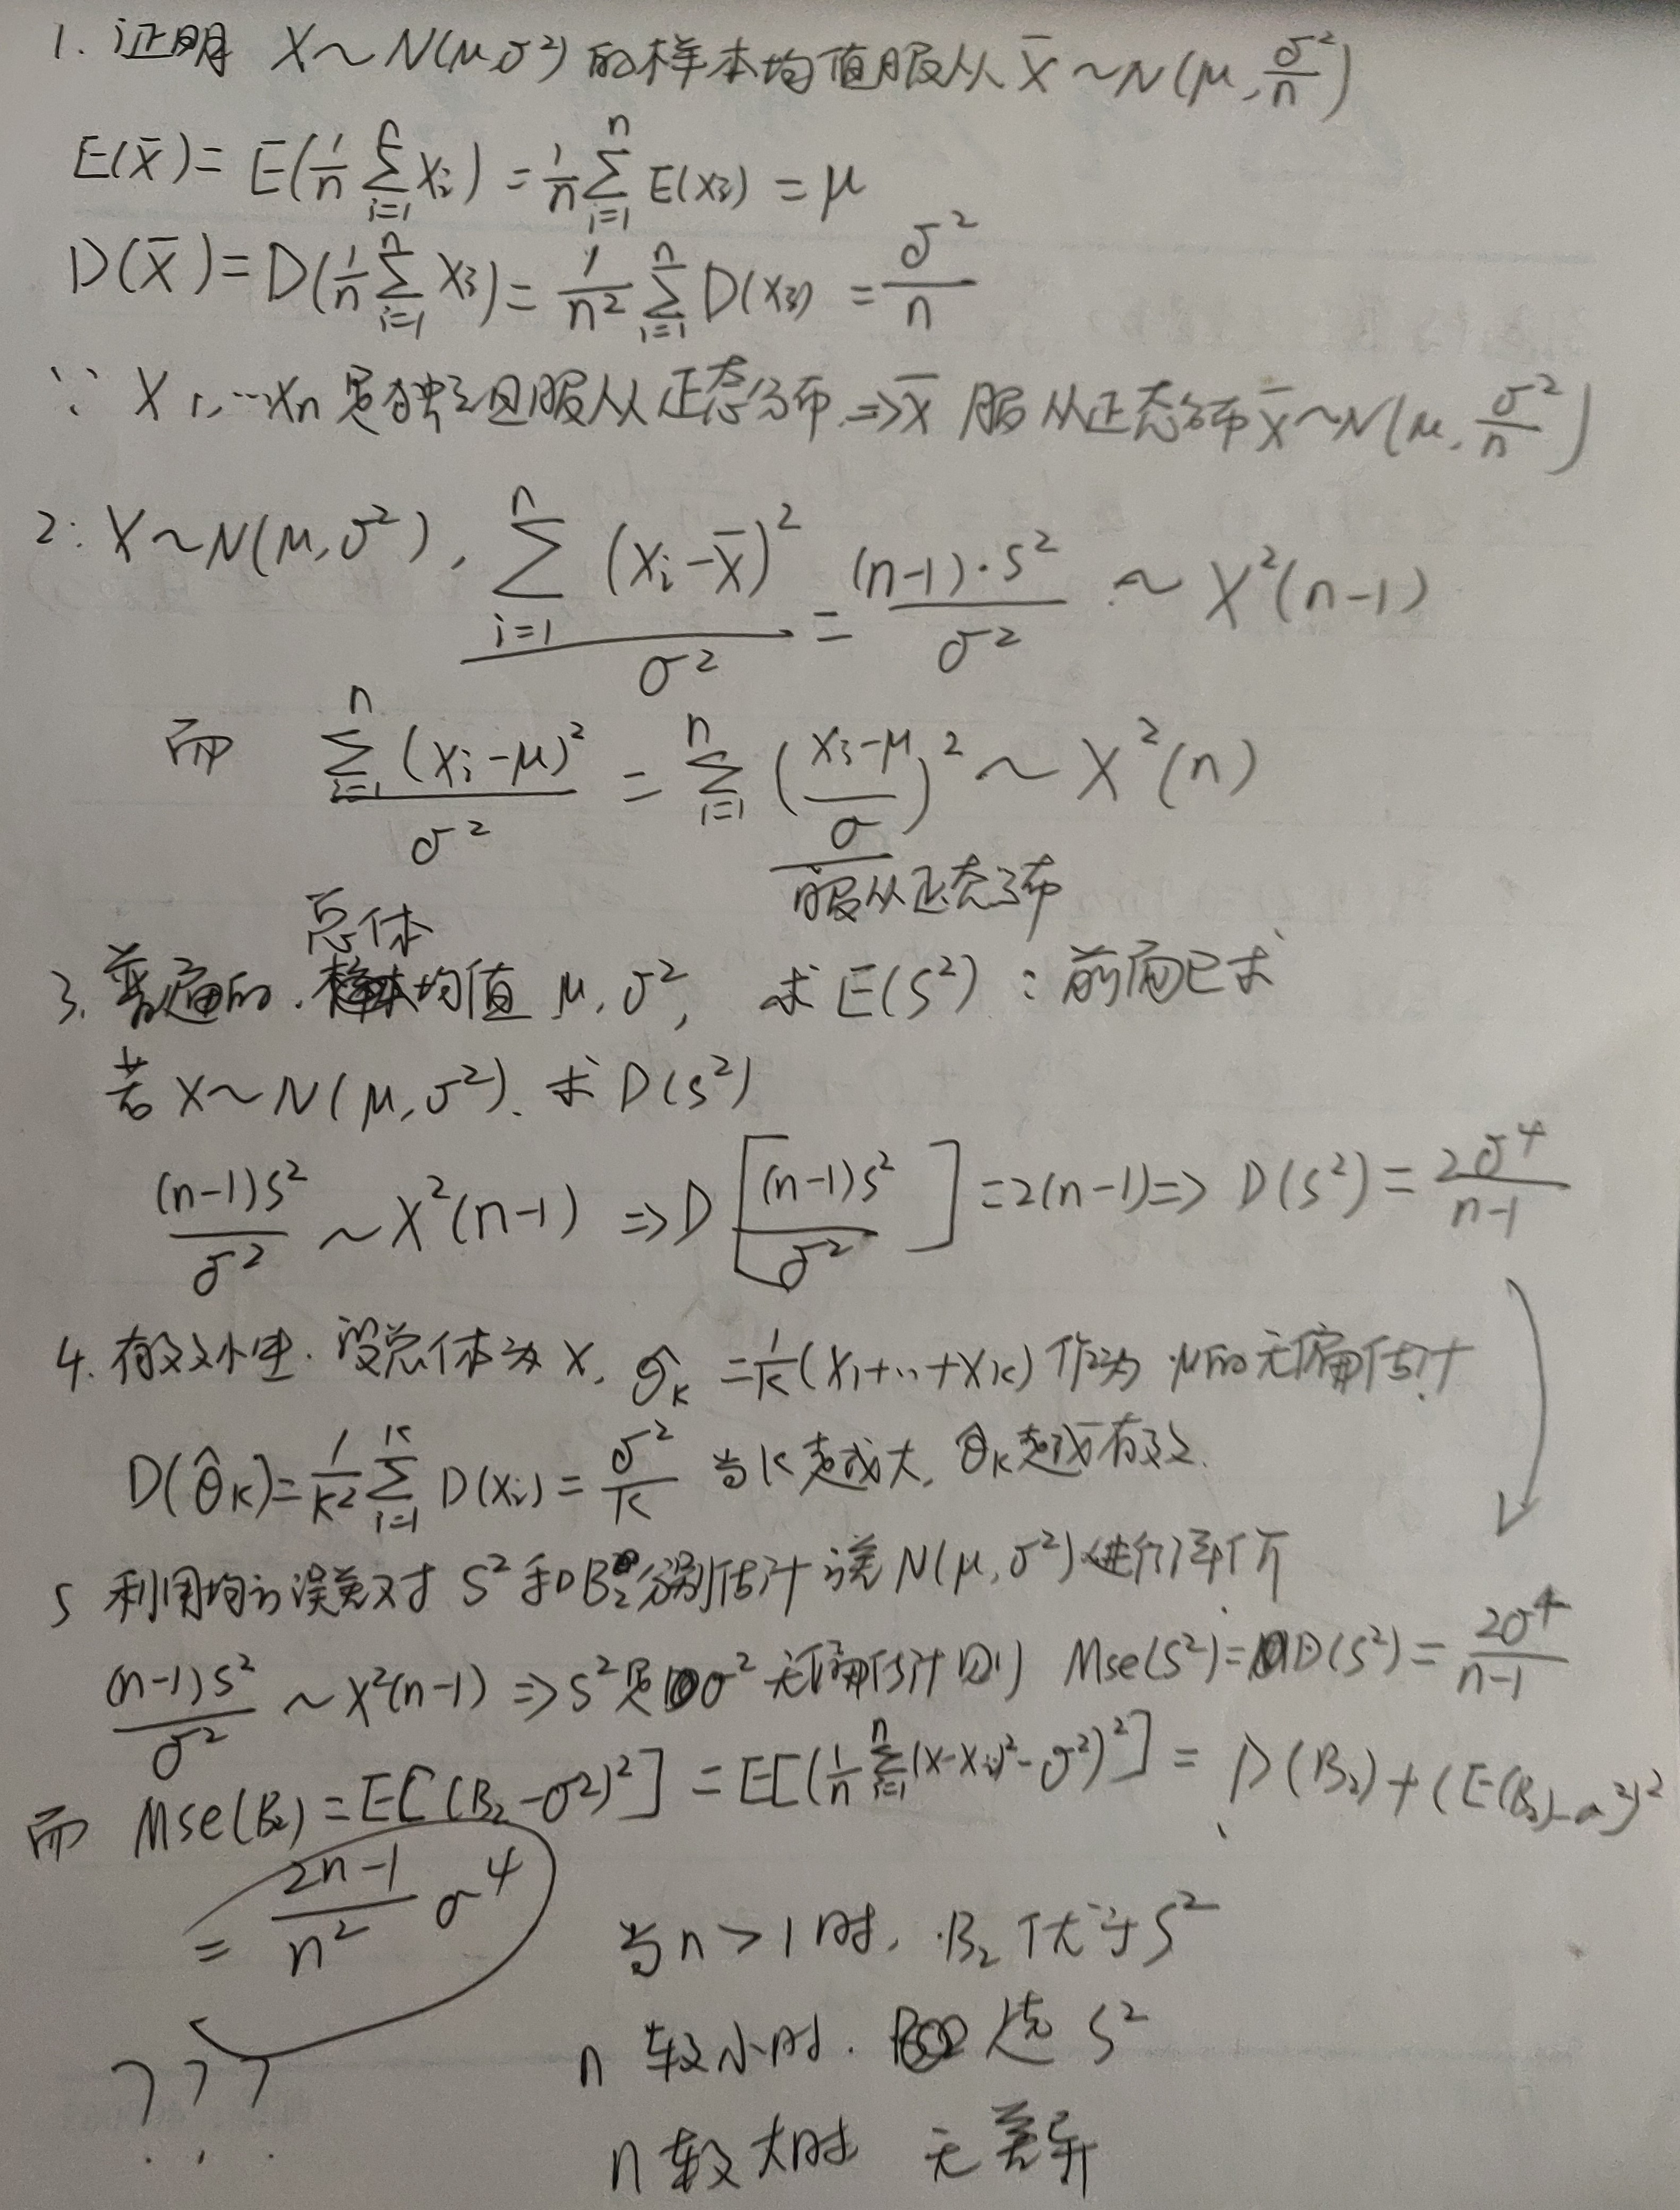 1. 证明 X~N(μ,σ²) 的样本均值服从 X̄~N(μ, σ²/n)
E(X̄) = E(1/n Σ_{i=1}^{n} Xi) = 1/n Σ_{i=1}^{n} E(Xi) = μ
D(X̄) = D(1/n Σ_{i=1}^{n} Xi) = 1/n² Σ_{i=1}^{n} D(Xi) = σ²/n
∵ X1, …Xn 是独立且服从正态分布 ⇒ X̄ 服从正态分布 X̄~N(μ, σ²/n)
2: X~N(μ,σ²), Σ_{i=1}^{n} (Xi-X̄)² / σ² = (n-1)·S² / σ² ~ X²(n-1)
而 Σ_{i=1}^{n} (Xi-μ)² / σ² = Σ_{i=1}^{n} ((Xi-μ)/σ)² ~ X²(n)
服从正态分布
总体
3. 普通的, 均值 μ, σ², 求 E(S²): 前面已求
若 X~N(μ,σ²). 求 D(S²)
(n-1)S²/σ² ~ X²(n-1) ⇒ D[(n-1)S²/σ²] = 2(n-1) ⇒ D(S²) = 2σ⁴/(n-1)
4. 有效性. 设总体为 X, θ̂k = 1/k (X1+…+Xk) 作为 μ的无偏估计
D(θ̂k) = 1/k² Σ_{i=1}^{k} D(Xi) = σ²/k 当k越大, θ̂k越有效.
5 利用均方误差对 S² 和 B2 分别估计 N(μ,σ²) 进行评价
(n-1)S²/σ² ~ X²(n-1) ⇒ S²是σ² 无偏估计 则 Mse(S²) = D(S²) = 2σ⁴/(n-1)
而 Mse(B2) = E[(B2-σ²)²] = E[(1/n Σ_{i=1}^{n} (X-Xi)²-σ²)²] = D(B2)+(E(B2)-σ²)²
= (2n-1)/n² σ⁴
当n>1时, B2 优于 S²
n 较小时. 选 S²
???
n 较大时 无差异